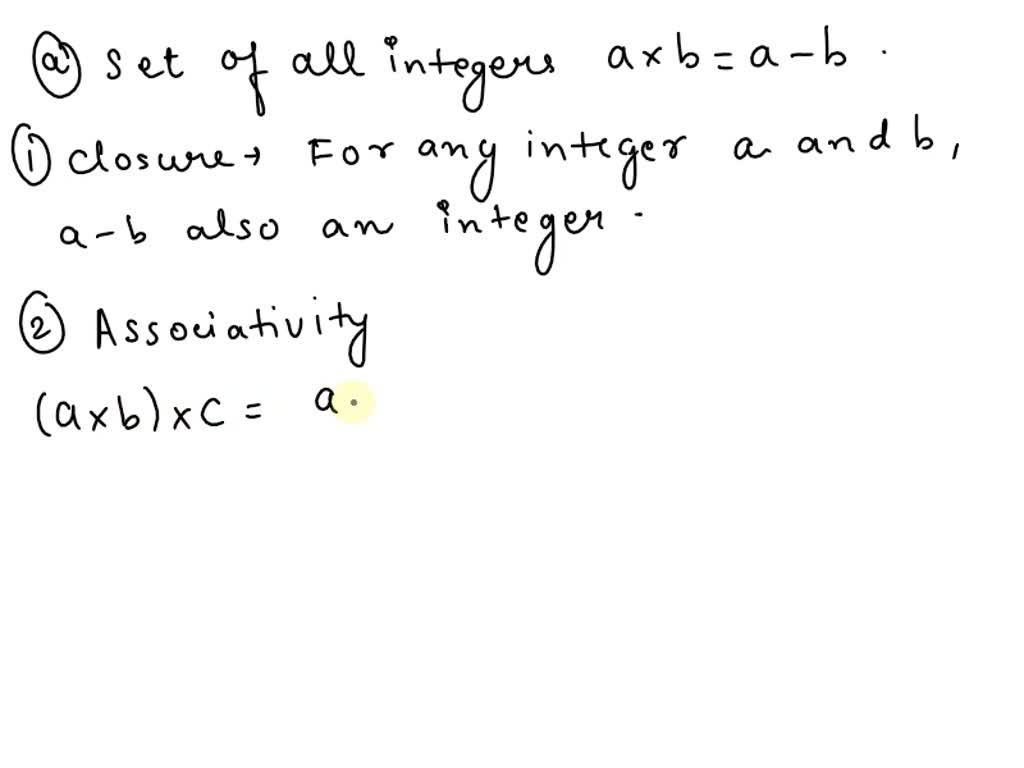 (a) Set of all integers a×b = a-b .
(1) Closure → For any integer a and b,
a-b also an integer .
(2) Associativity
(a×b)×c = a